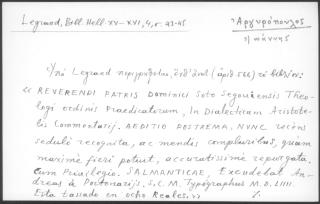 Legrand, Bibl. Hell. XV-XVI, 4, σ. 43-45
Ἀργυρόπουλος
Ἰωάννης
Legrand περιγράφει
« REVERENDI PATRIS Dominici Soto Segouiensis Theo-
logi ordinis Praedicatorum, In Dialecticam Aristote-
lis Commentarij. AEDITIO POSTREMA, NVNC recens
sedulò recognita, ac mendis compluribus, quam
maximè fieri potuit, accuratissimè repurgata.
Cum Priuilegio. SALMANTICAE, Excudebat An-
dreas à Portonarijs, S. C. M. Typographus M. D. LIIII.
Esta tassado en ocho Reales. »